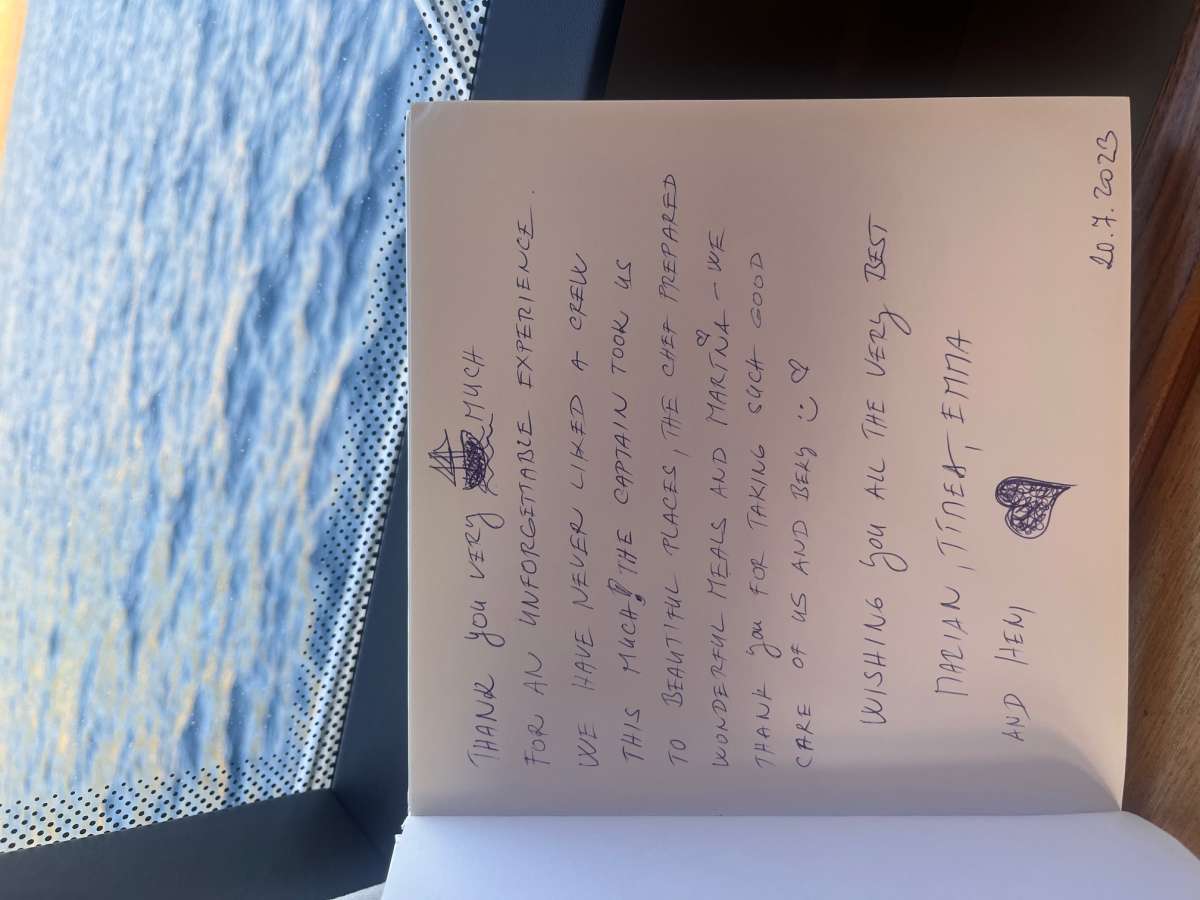 THANK YOU VERY MUCH
FOR AN UNFORGETTABLE EXPERIENCE.
WE HAVE NEVER LIKED A CREW
THIS MUCH! THE CAPTAIN TOOK US
TO BEAUTIFUL PLACES, THE CHEF PREPARED
WONDERFUL MEALS AND MARTNA – WE
THANK YOU FOR TAKING SUCH GOOD
CARE OF US AND BEKY :) ♡
WISHING YOU ALL THE VERY BEST
MARIAN, TIMEA, EMMA
AND HENI
20.7.2023